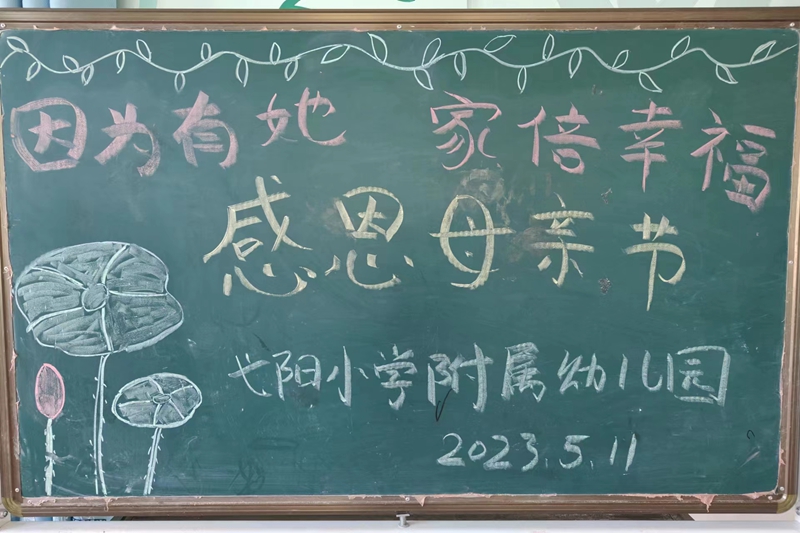 因为有她 家倍幸福
感恩母亲节
弋阳小学附属幼儿园
2023.5.11